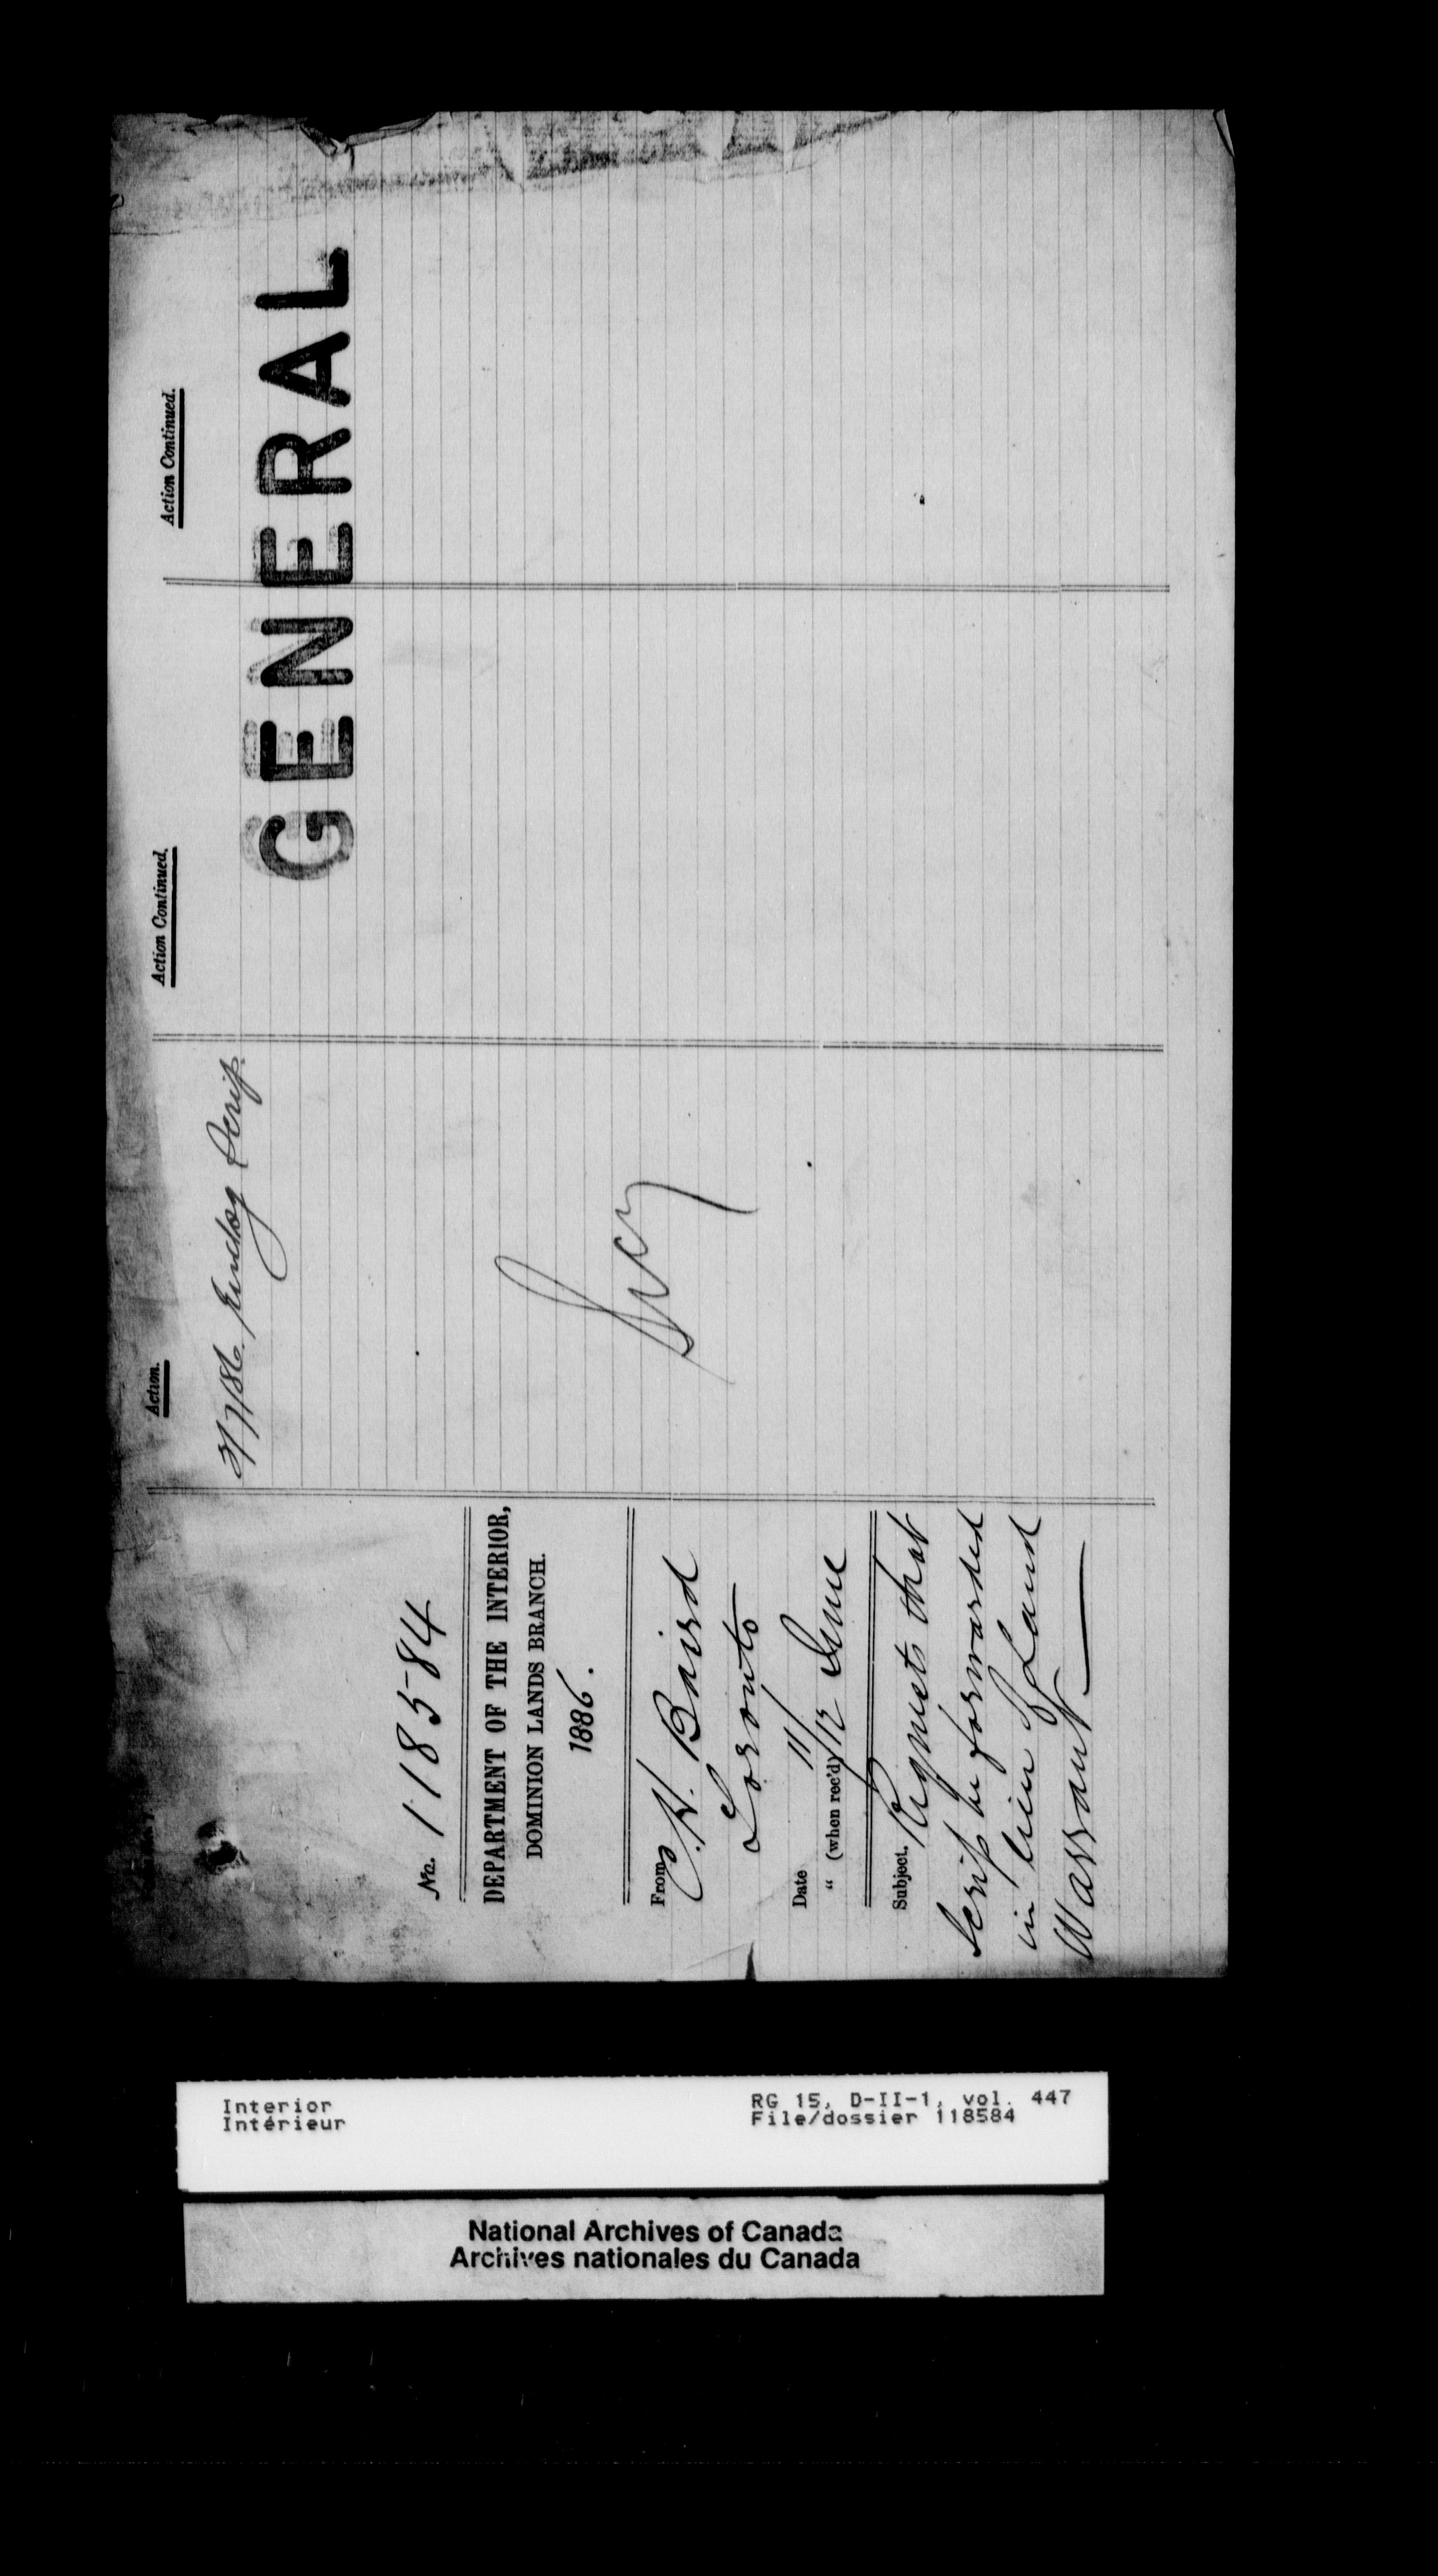 No. 118584
DEPARTMENT OF THE INTERIOR,
DOMINION LANDS BRANCH.
1886.
From C. H. Baird
Toronto
Date 11/
" (when rec'd) 12 June
Subject. Requests that
Scrip be forwarded
in lieu of Land
Warrant
Action.
/86. Enclog Scrip.
Action Continued.
Action Continued.
GENERAL
Interior
Intérieur
RG 15, D-II-1, vol. 447
File/dossier 118584
National Archives of Canada
Archives nationales du Canada